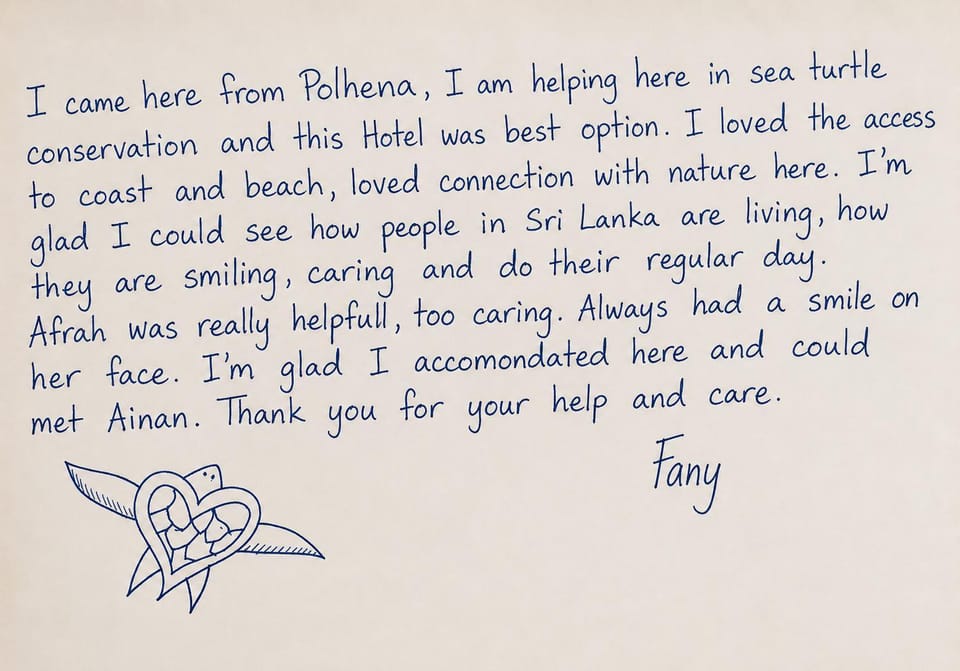 I came here from Polhena, I am helping here in sea turtle
conservation and this Hotel was best option. I loved the access
to coast and beach, loved connection with nature here. I'm
glad I could see how people in Sri Lanka are living, how
they are smiling, caring and do their regular day.
Afrah was really helpfull, too caring. Always had a smile on
her face. I'm glad I accomondated here and could
met Ainan. Thank you for your help and care.
Fany